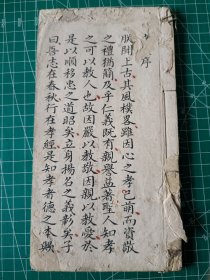 序
朕聞上古其風樸畧雖因心之孝已萌而資敬
之禮猶簡及乎仁義既有親譽益著聖人知孝
之可以教人也故因嚴以教敬因親以教愛於
是以順移忠之道昭矣立身揚名之義彰矣子
曰吾志在春秋行在孝經是知孝者德之本歟